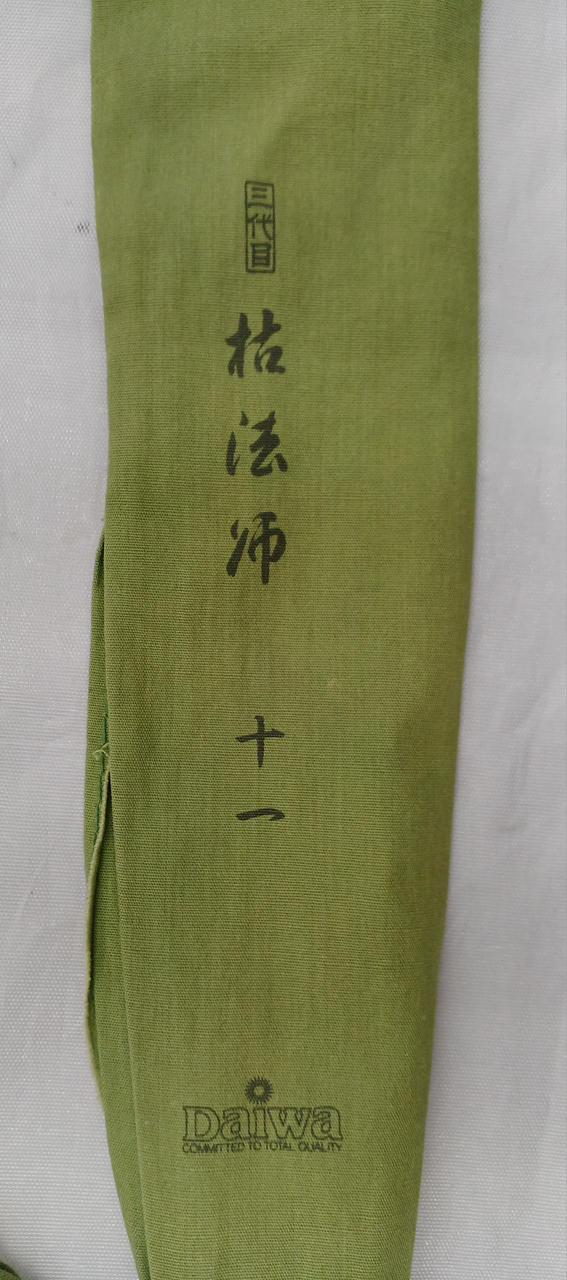 三代目
枯法师 十一
Daiwa
COMMITTED TO TOTAL QUALITY